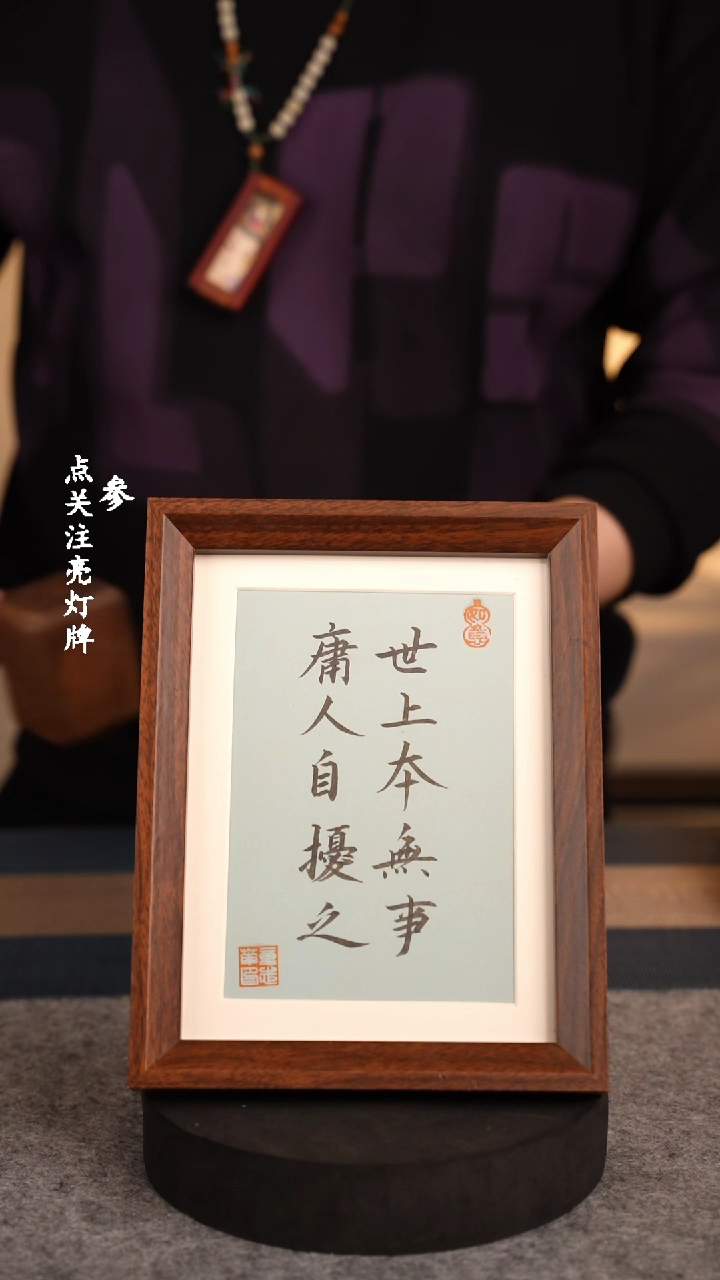 世上本無事
庸人自擾之
参
点关注亮灯牌